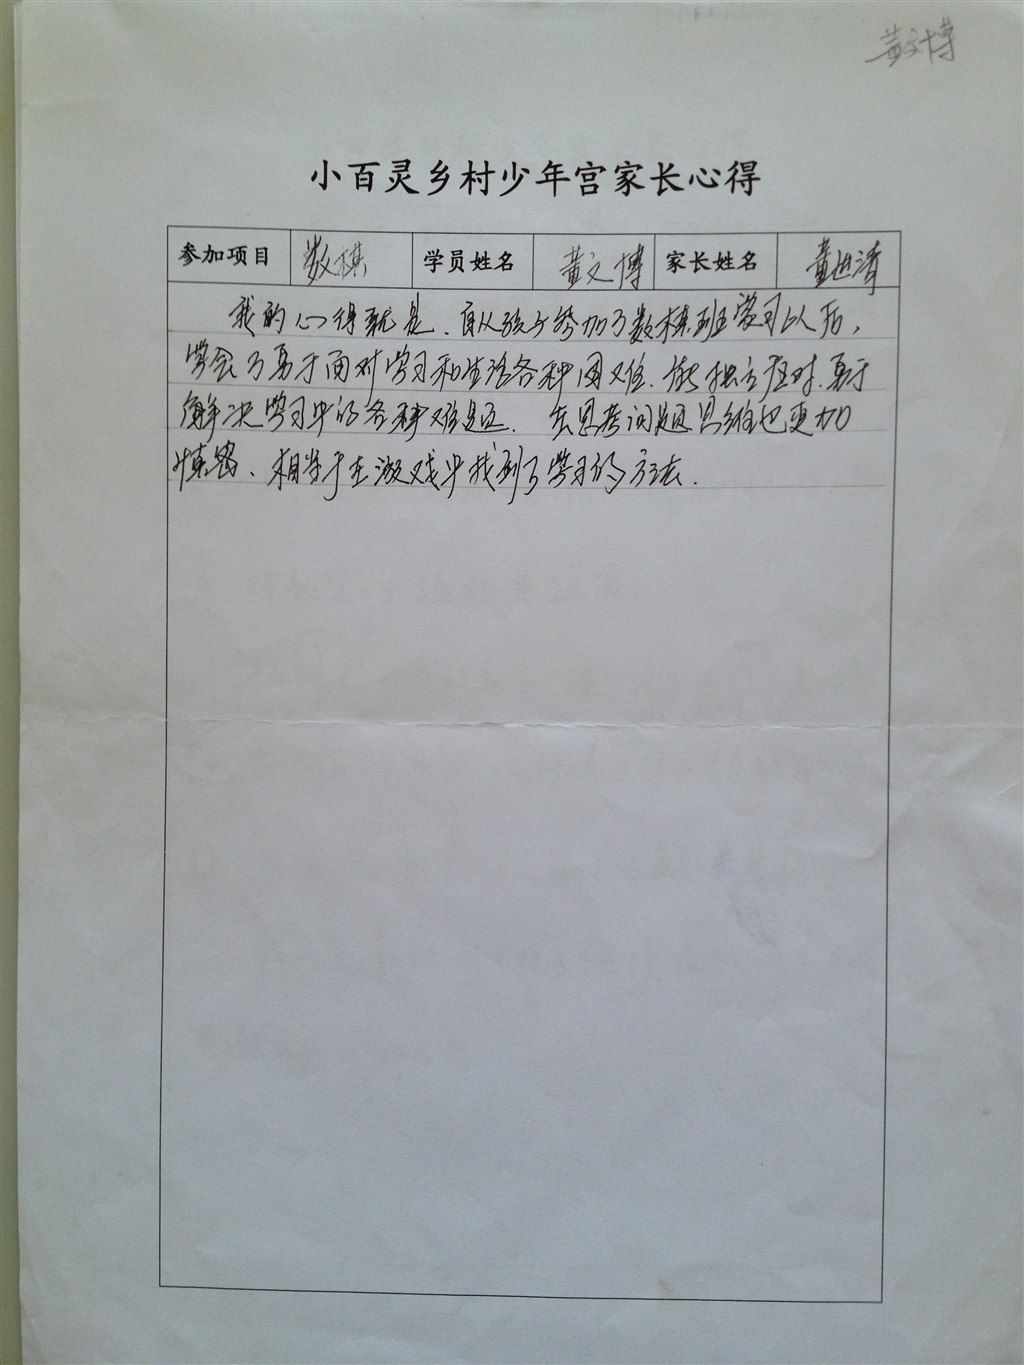 黄文博
小百灵乡村少年宫家长心得
参加项目 数棋 学员姓名 黄文博 家长姓名 黄进清
我的心得就是、自从孩子参加了数棋班学习以后，
学会了勇于面对学习和生活各种困难、能独立应对、勇于
解决学习中的各种难题、在思考问题思维也更加
、相当于在游戏中找到了学习的方法.